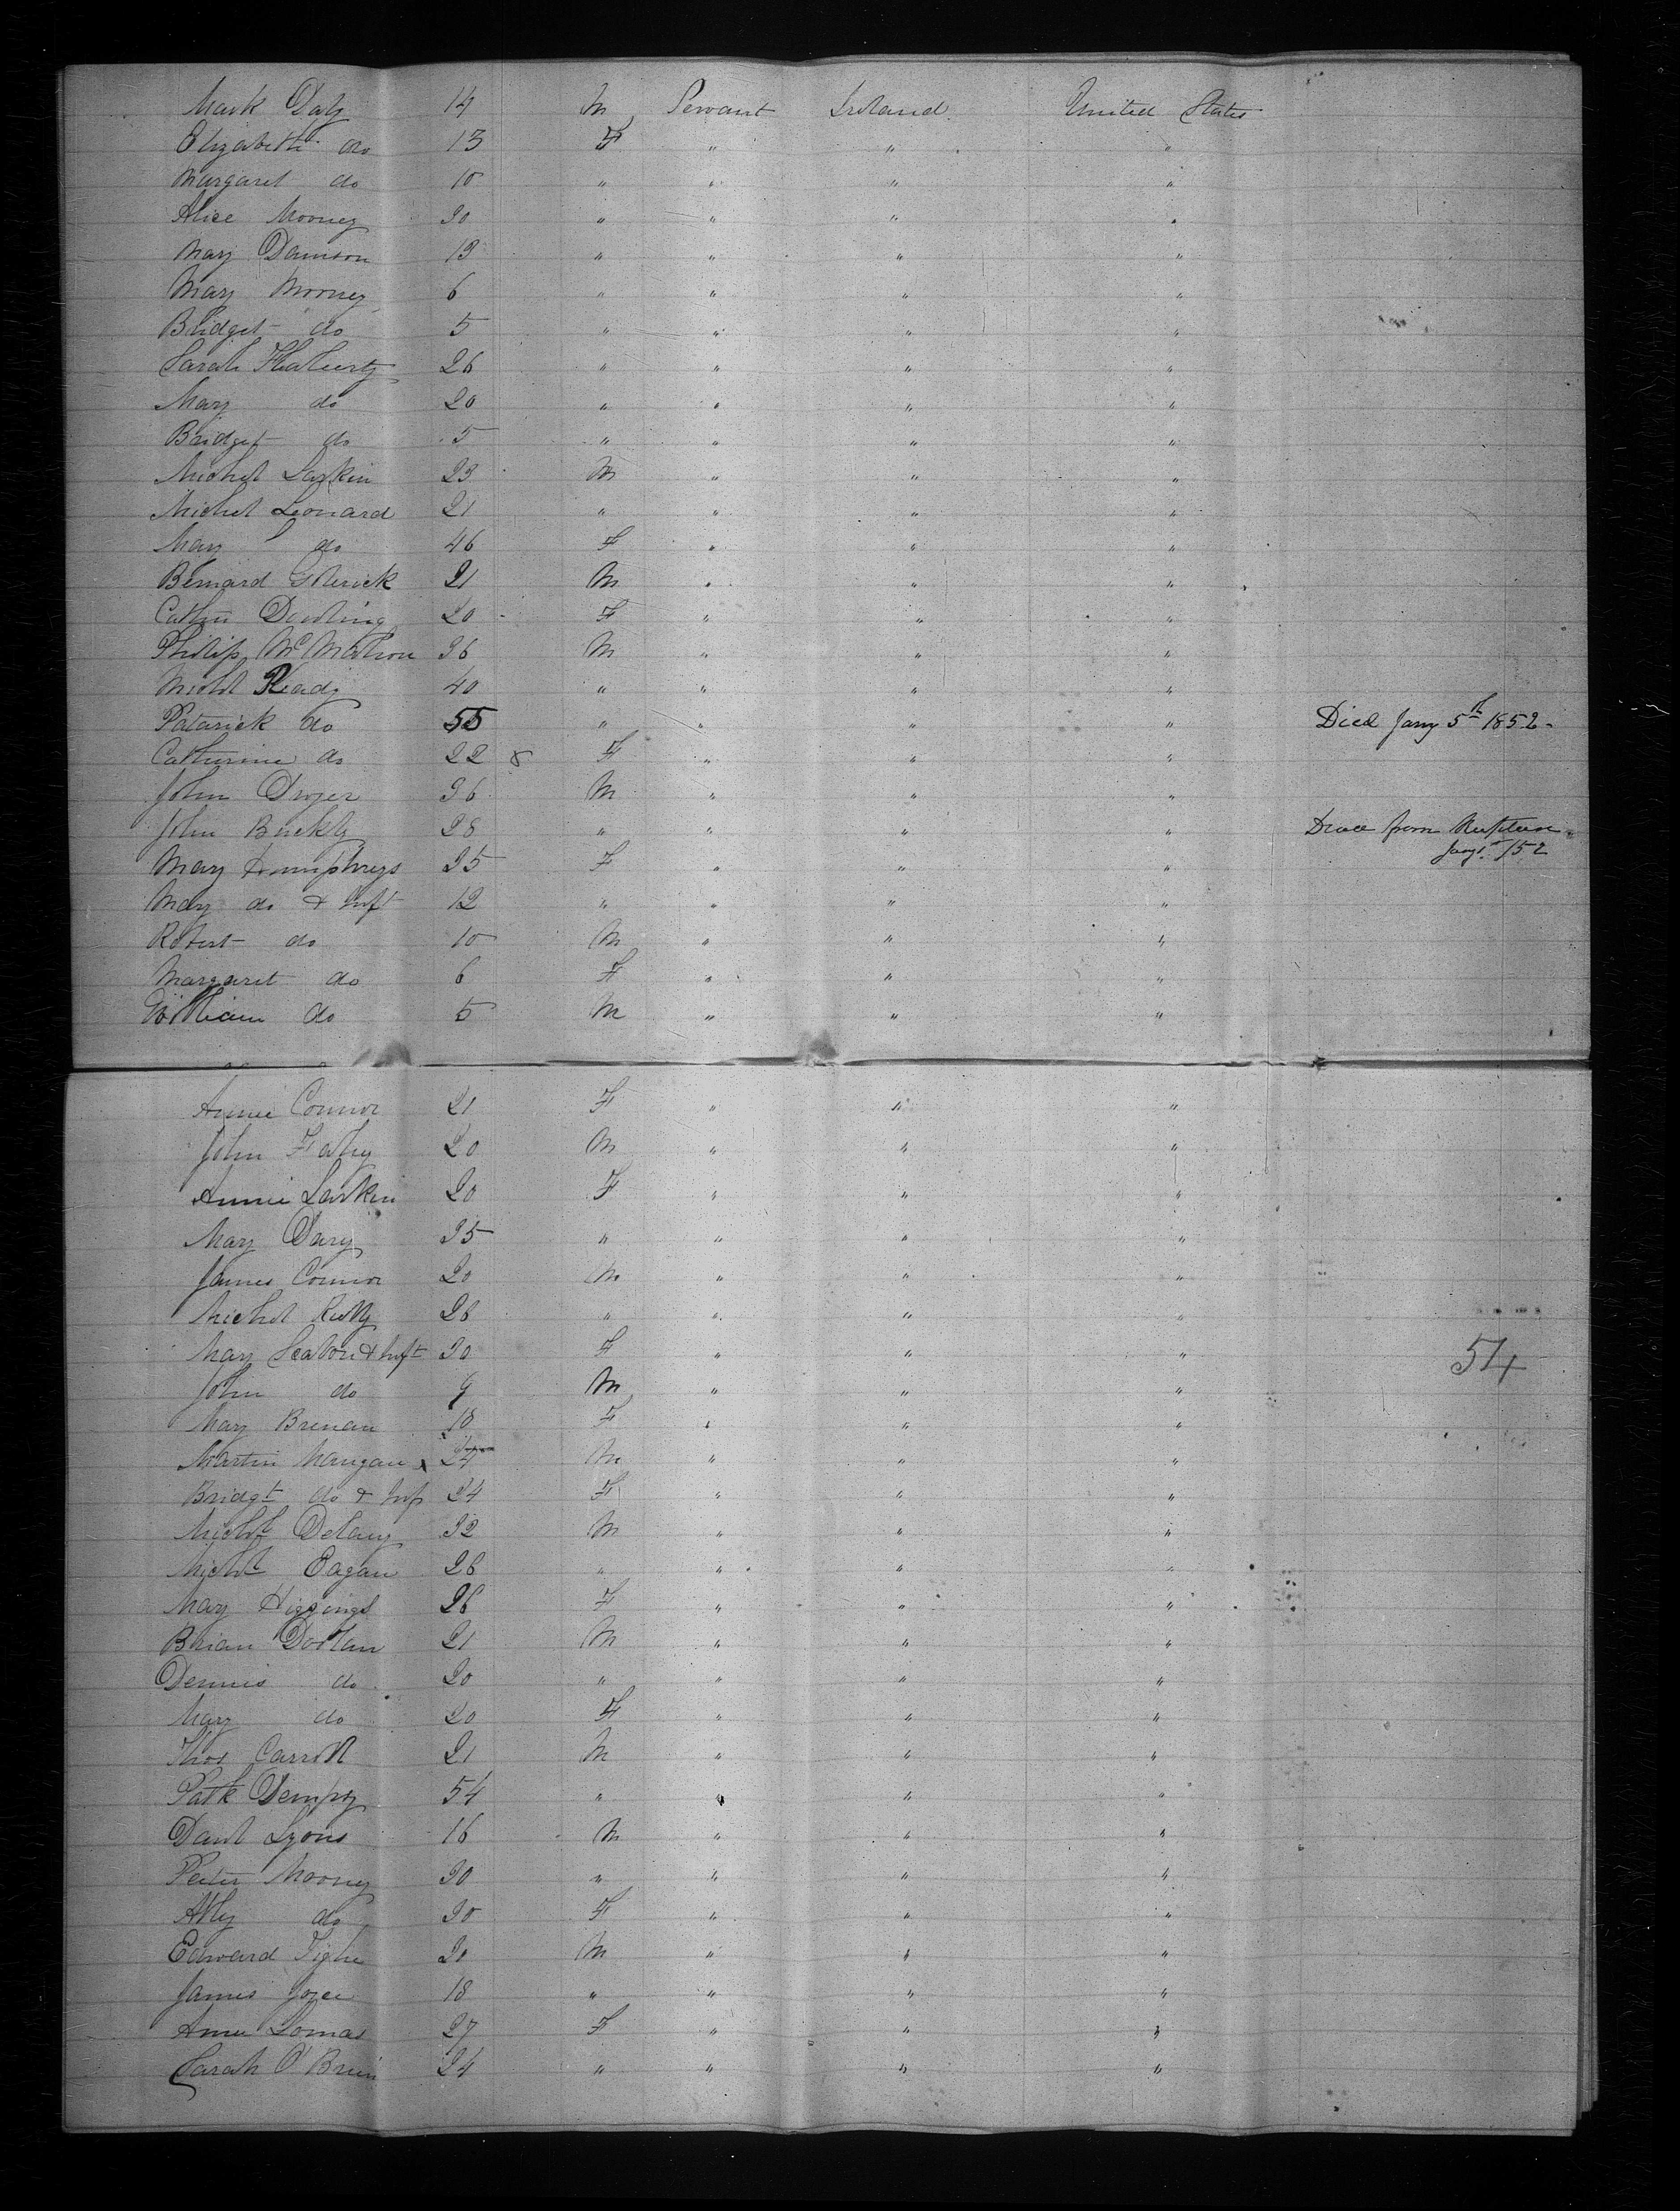 Mark Daly 14 M Servant Ireland United States
Elizabeth do 13 F " " "
Margaret do 10 " " " "
Alice Mooney 30 " " " "
Mary Damson 13 " " " "
Mary Mooney 6 " " " "
Bridget do 5 " " " "
Sarah Flaherty 26 " " " "
Mary do 20 " " " "
Bridget do 5 " " " "
Michel Larkin 23 M " " "
Michel Leonard 21 " " " "
Mary do 46 F " " "
Bernard 21 M " " "
Cathn Dowling 20 F " " "
Philip McMahon 36 M " " "
Michl Ready 40 " " " "
Patarick do 55 " " " " Died Jany 5th 1852
Catherine do 22 F " " "
John Dwyer 36 M " " "
John Buckly 28 " " " " Died from Rupture
Jany 1st /52
Mary Humphreys 35 F " " "
Mary do & Inft 12 " " " "
Robert do 10 M " " "
Margaret do 6 F " " "
William do 5 M " " "
Annie Connor 21 F " " "
John Fahy 20 M " " "
Annie Larkin 20 F " " "
Mary Dary 35 " " " "
James Connor 20 M " " "
Michel 26 " " " "
Mary Seaton & Inft 30 F " " " 54
John do 9 M " " "
Mary Brenan 18 F " " "
Martin Mangan x 24 M " " "
Bridgt do & Inf 24 F " " "
Michl Delany 32 M " " "
Michl Eagan 26 " " " "
Mary Higgings 26 F " " "
Brian Doolan 21 M " " "
Dennis do 20 " " " "
Mary do 20 F " " "
Thos Carroll 21 M " " "
Patk Dempsy 54 " " " "
Danl Lyons 16 M " " "
Peter Mooney 30 " " " "
Ally do 30 F " " "
Edward Tighe 20 M " " "
James Joyce 18 " " " "
Anne Lomas 27 F " " "
Sarah O'Brien 24 " " " "